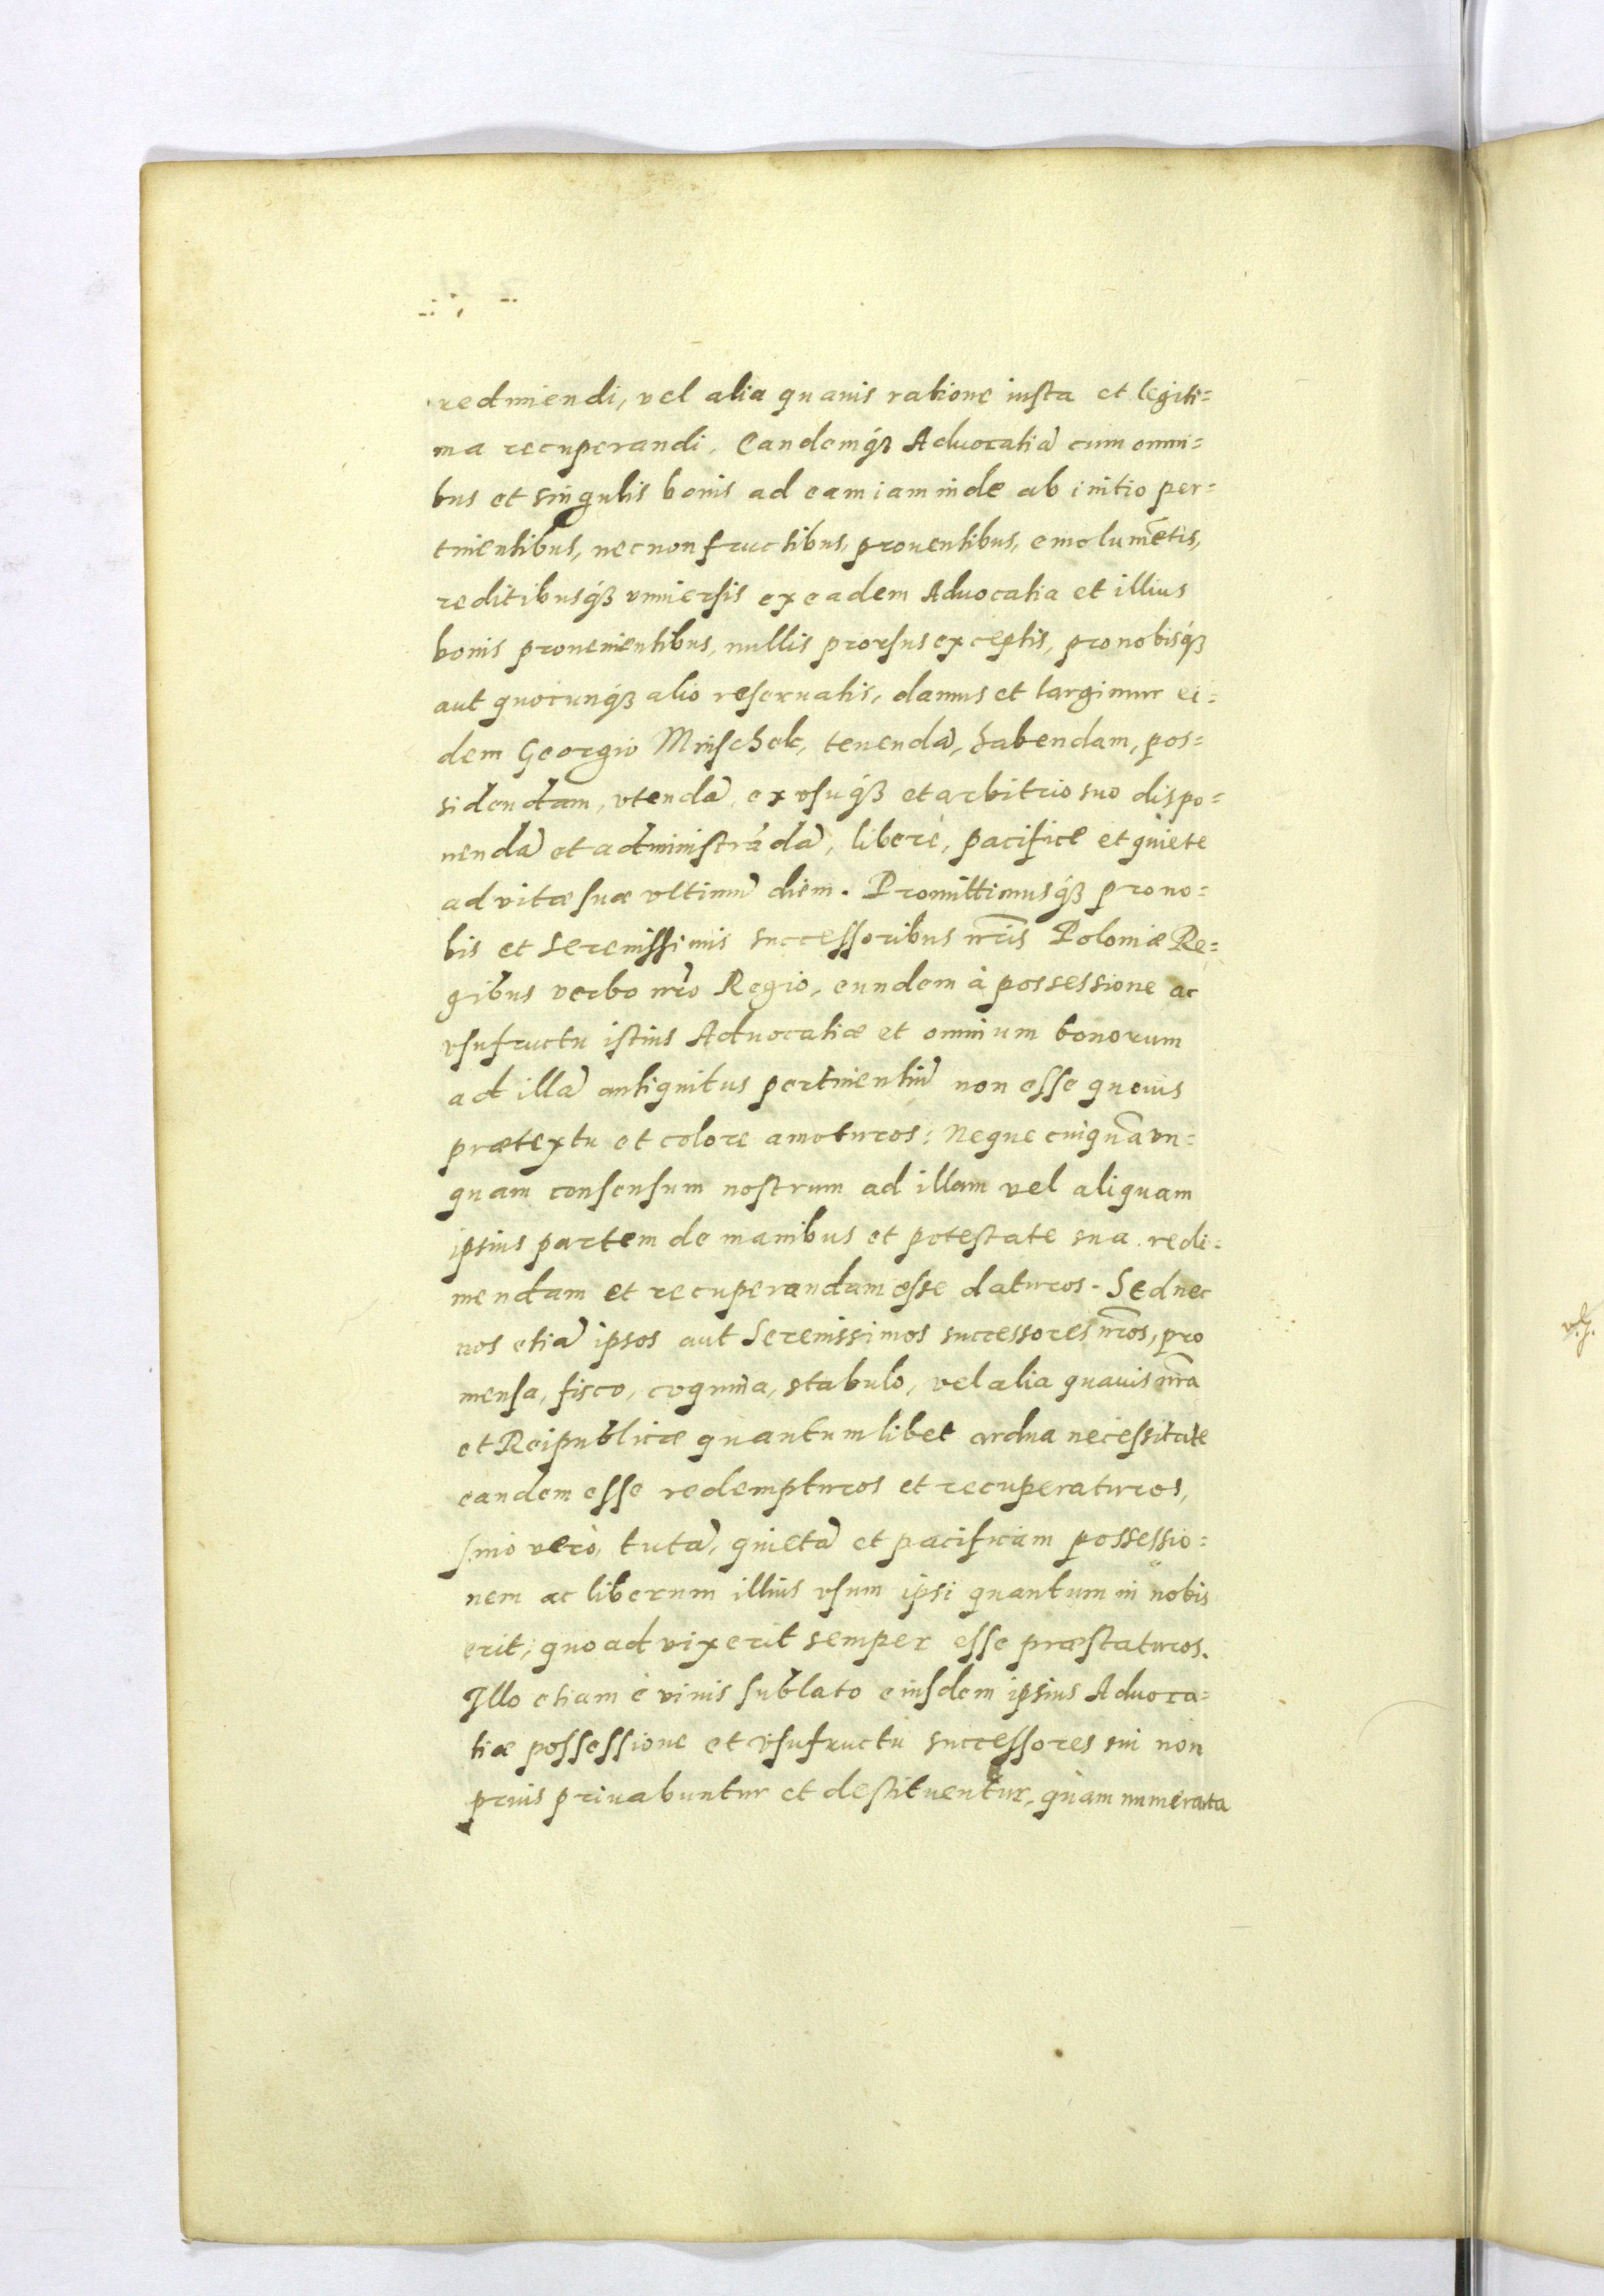 redimendi, vel alia quauis ratione iusta et legiti=
ma recuperandi. Eandemq́ꝫ Aduocatiã cum omni=
bus et singulis bonis ad eam iam inde ab initio per=
tinentibus, necnon fructibus, prouentibus, emolumẽtis,
reditibusq́ꝫ vniuersis ex eadem Aduocatia et illius
bonis prouenientibus, nullis prorsus exceptis, pro nobisq́ꝫ
aut quocunq́ꝫ alio reseruatis, damus et largimur ei=
dem Georgio Mnischek, tenendã, habendam, pos=
sidendam, vtendã, ex vsuq́ꝫ et arbitrio suo dispo=
nendã et administrãdã, liberè, pacificè et quietè
ad vitæ suæ vltimũ diem. Promittimusq́ꝫ pro no=
bis et Serenissimis successoribus nr̃is Poloniæ Re=
gibus verbo nr̃o Regio, eundem à possessione ac
vsufructu istius Aduocatiæ et omnium bonorum
ad illã antiquitus pertinentiũ non esse quouis
prætextu et colore amoturos: Neque cuiquã vn=
quam consensum nostrum ad illam vel aliquam
ipsius partem de manibus et potestate sua redi=
mendam et recuperandam esse daturos. Sed nec
nos etiã ipsos aut Serenissimos successores nr̃os, pro
mensa, fisco, coquina, stabulo, vel alia quauis nr̃a
et Reipublicæ quantumlibet ardua necessitate
eandem esse redempturos et recuperaturos,
imò verò, tutã, quietã et pacificam possessio=
nem ac liberum illius vsum ipsi quantum in nobis
erit, quoad vixerit semper esse præstaturos.
Illo etiam è viuis sublato eiusdem ipsius Aduoca=
tiæ possessione et vsufructu successores sui non
prius priuabuntur et destituentur, quàm numerata